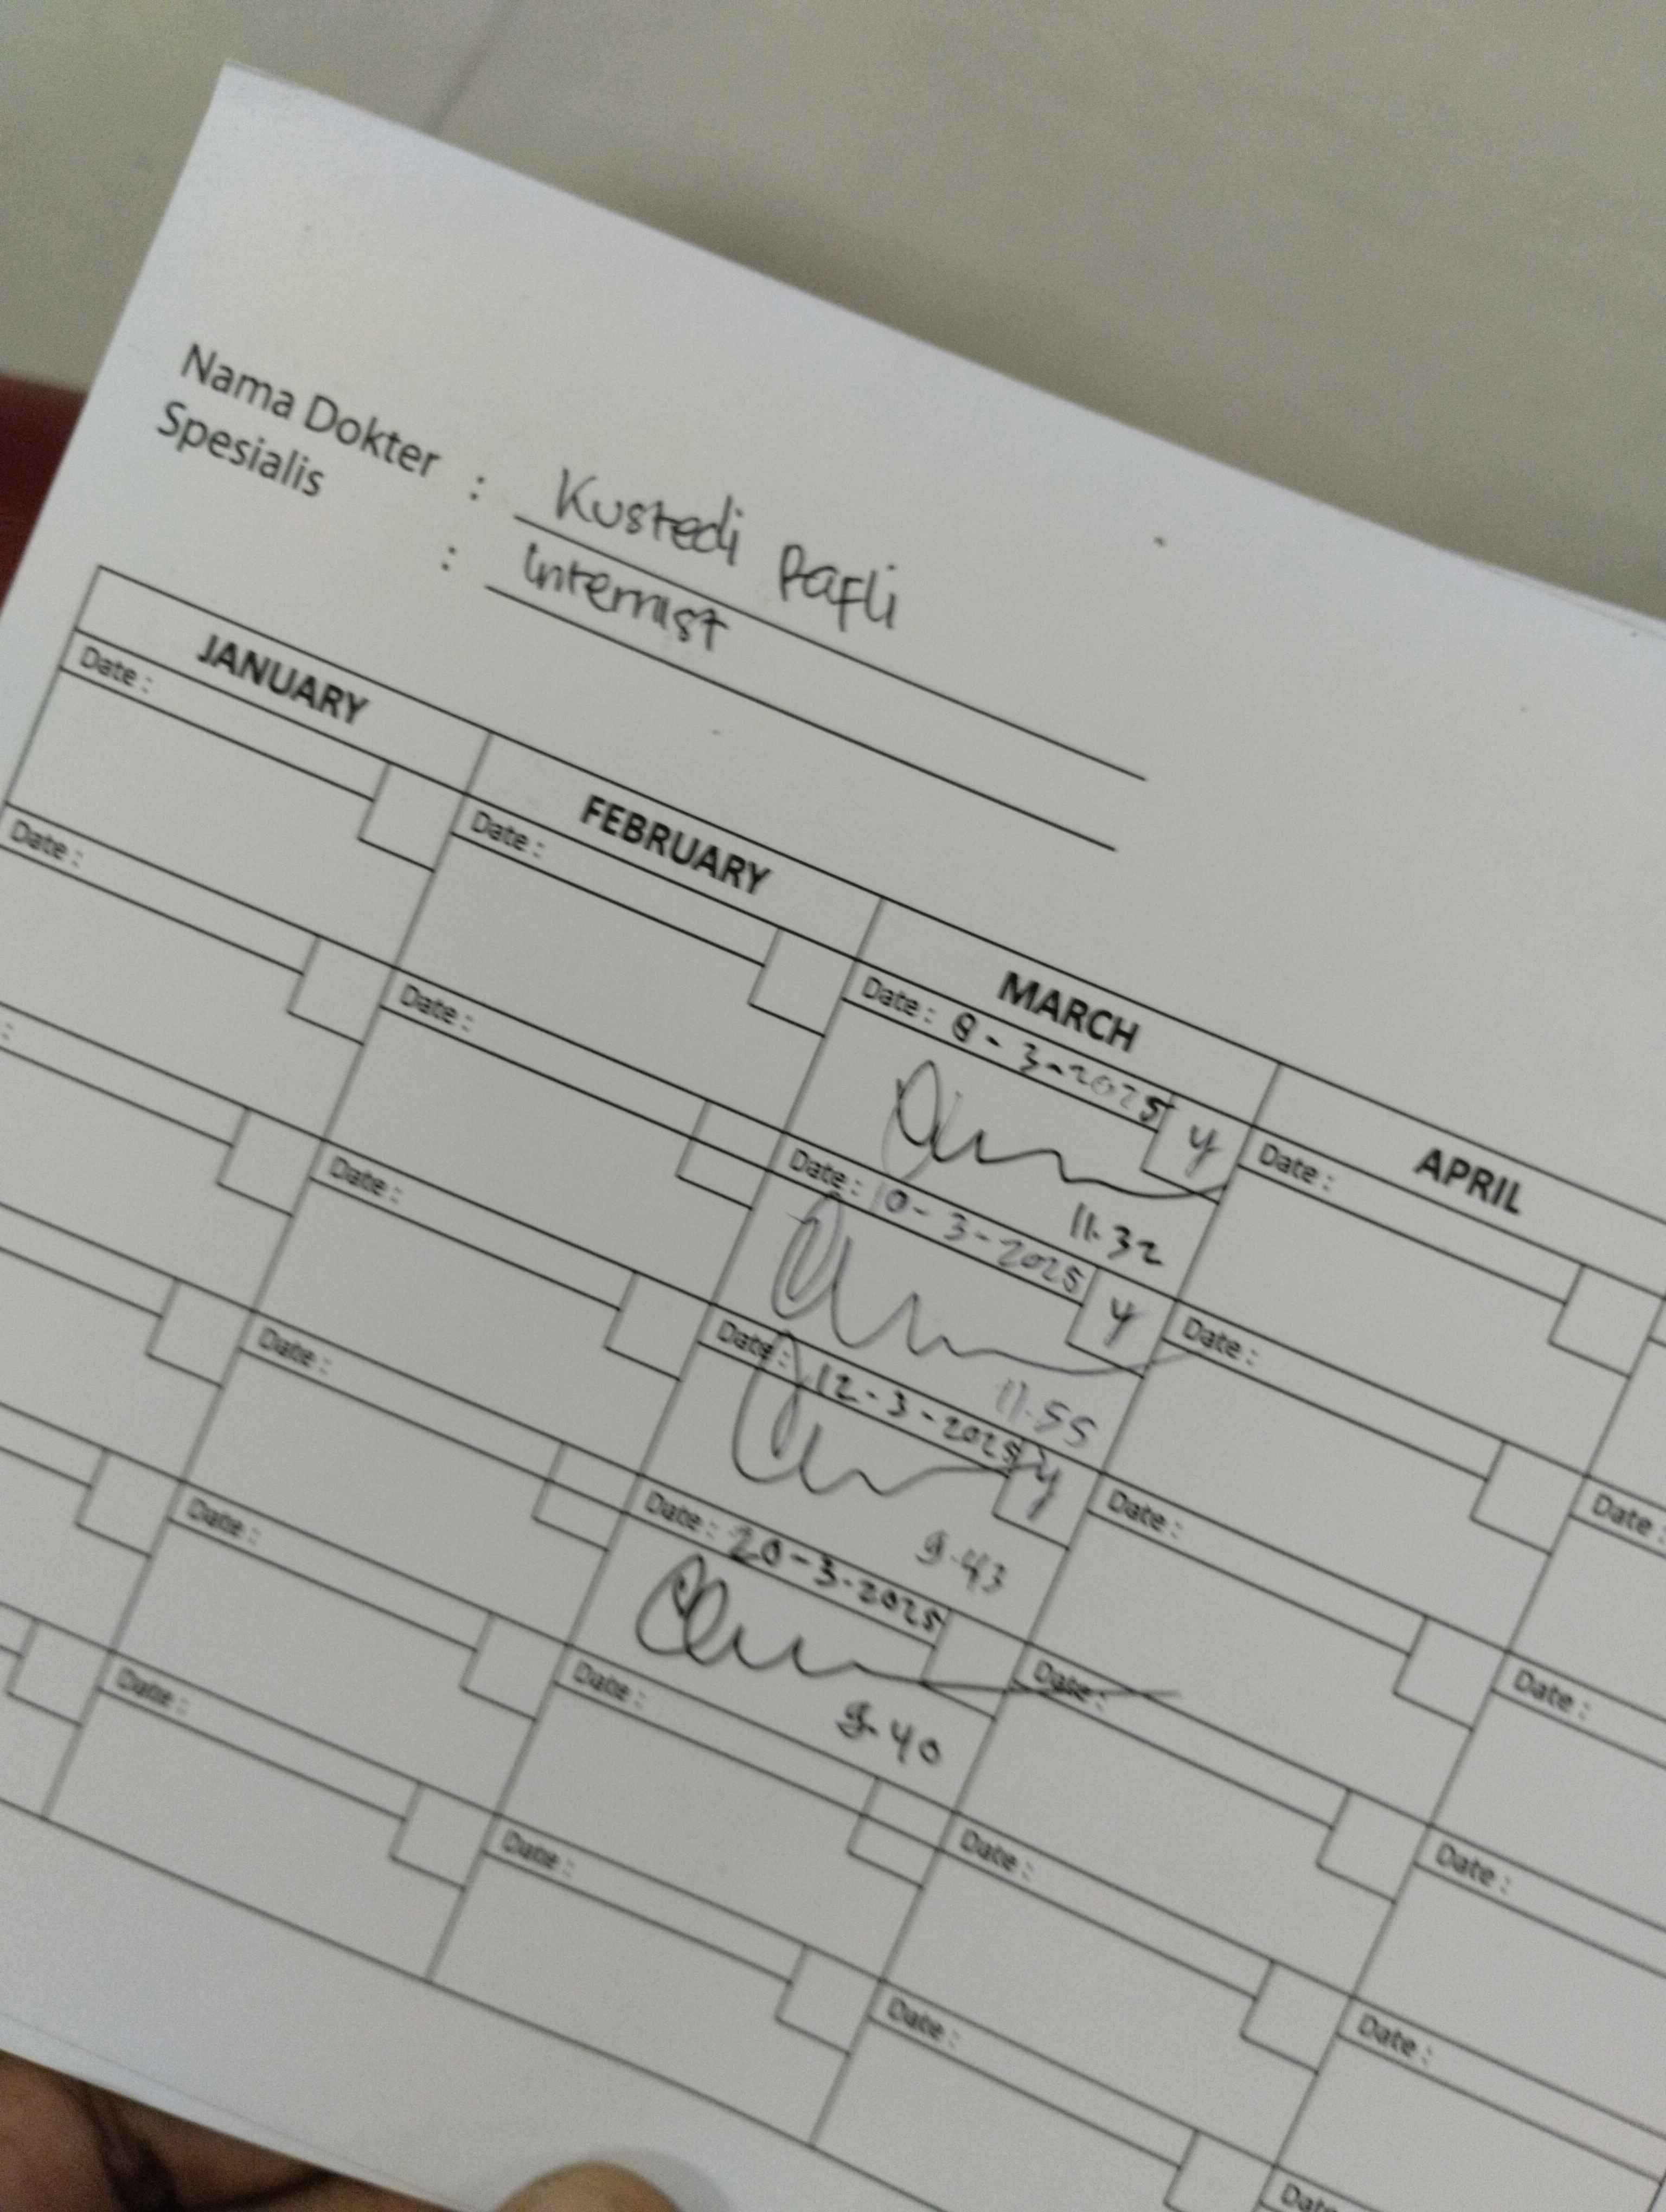 Nama Dokter : Kustedi Rafli
Spesialis : Internist
JANUARY FEBRUARY MARCH APRIL
Date : Date : Date : 8-3-2025 y Date :
11.32
Date : Date : Date : 10-3-2025 y Date : Date :
11.55
: Date : Date : 12-3-2025 y Date : Date :
9.43
Date : Date : 20-3-2025 Date : Date :
9.40
Date : Date : Date : Date :
Date : Date : Date : Date